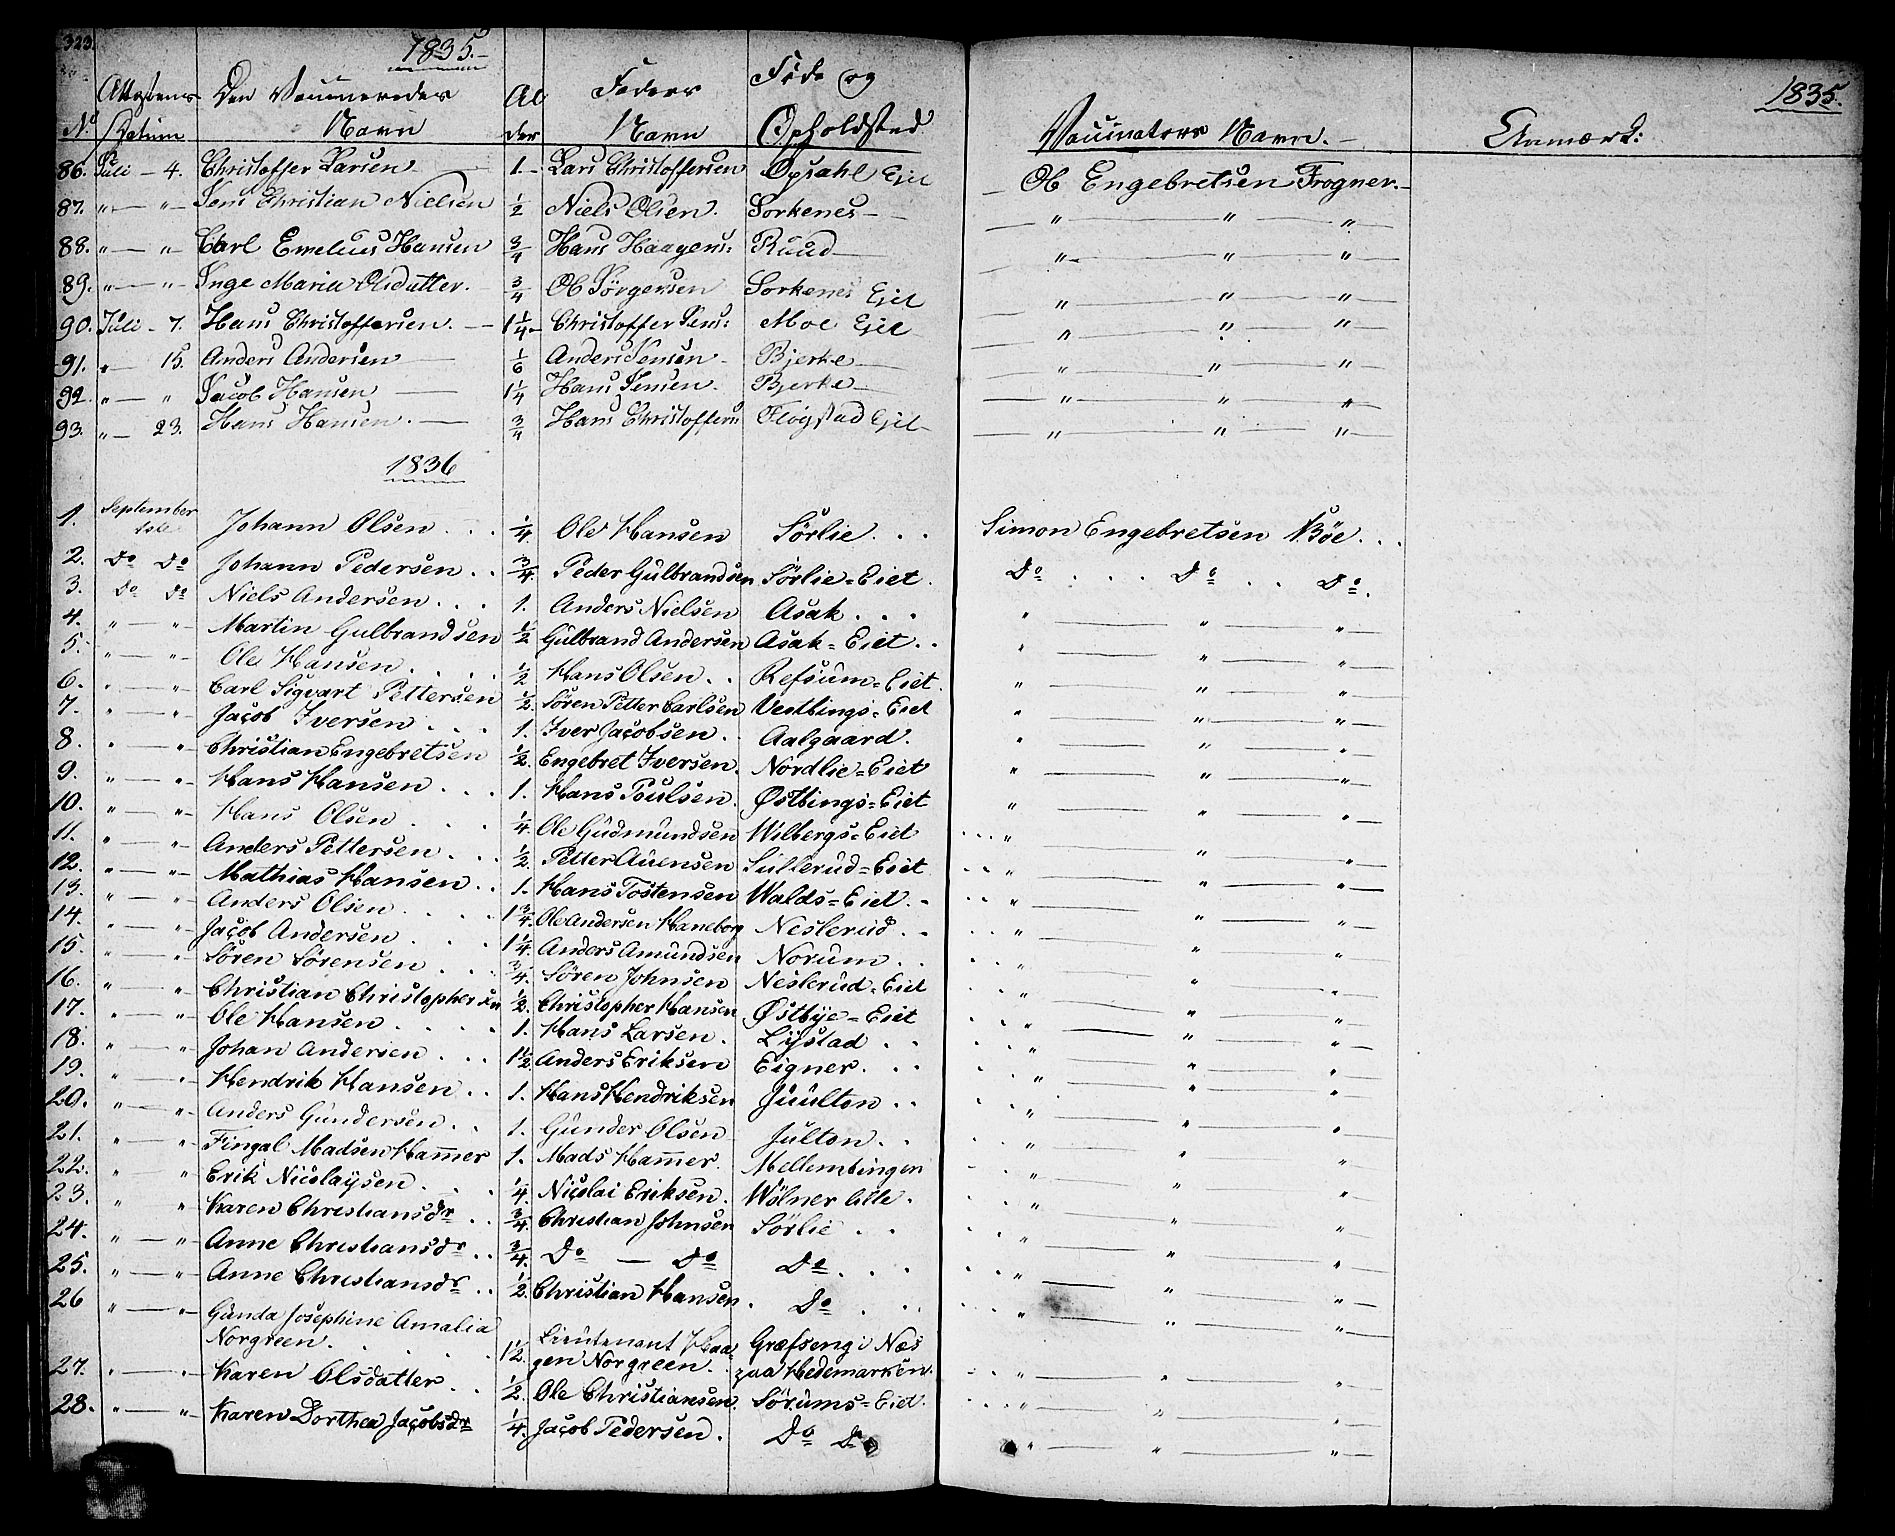 323.
1835.-
1835.
Attestens Den Vaccineredes Al Faders Føde og
No. Datum Navn der Navn Opholdsted Vaccinators Navn.- Anmærk:
86. Juli - 4. Christoffer Larsen 1.- Lars Christoffersen Opsahl Ejet - Ole Engebretsen Frogner.-
87. " - " - Jens Christian Nielsen 1/2 Niels Olsen. Sorkenes - - " - " - "
88. " - " - Carl Emelius Hansen 3/4 Hans Haagens: Ruud - - " - " - "
89. " - " - Inge Maria Olsdatter. - 3/4 Ole Jørgensen Sorkenes Ejet - " - " - "
90. Juli - 7. Hans Christoffersen. - 1 1/4 - Christoffer Jens: Moe Ejet - " - " - "
91. " - 15. Anders Andersen - 1/6 Anders Jensen Bjerke - - " - " - "
92. " - " Jacob Hansen - 1 1/4 Hans Jensen. Bjerke - - " - " - "
93. " - 23. Hans Hansen. - 3/4 Hans Christoffers: Flogstad Ejet - - " - " - "
1836
1. September 1ste Johann Olsen . . . 1/4 Ole Hansen Sørlie. . . Simon Engebretsen Bøe. . .
2. Do Do Johann Pedersen . . 3/4. Peder Gulbrandsen Sørlie=Eiet. Do . . . Do . . Do.
3. Do Do Niels Andersen . . . 1. Anders Nielsen Asak . . . " - " - "
4. " - " Martin Gulbrandsen 1/2 Gulbrand Andersen Asak=Eiet. . " - " - "
5. " - " Ole Hansen. . . . 1/2 Hans Olsen . . Refsum=Eiet. " - " - "
6. " - " Carl Sigvart Pettersen 1/2. Søren Petter Carlsen Vestbings=Eiet " - " - "
7. " - " Jacob Iversen . . . 1. Iver Jacobsen. . Aalgaard. " - " - "
8. " - " Christian Engebretsen 1/2. Engebret Iversen. Nordlie=Eiet " - " - "
9. " - " Hans Hansen . . . 1. Hans Poulsen. Østbings=Eiet " - " - "
10. " - " Hans Olsen . . . 1/4. Ole Gudmundsen Wilbergs=Eiet . . . " - " - "
11. " - " Anders Pettersen . . . 1/2. Petter Auensen Sullerud=Eiet . . " - " - "
12. " - " Mathias Hansen . . 1. Hans Tostensen Walds=Eiet. . . . " - " - "
13. " - " Anders Olsen . . . 1 3/4. Ole Andersen Haneborg Neslerud. . . . " - " - "
14. " - " Jacob Andersen . . . 1 1/4. Anders Amundsen Norum . . . . " - " - "
15. " - " Søren Sørensen . . . 3/4. Søren Johnsen Neslerud=Eiet . . " - " - "
16. " - " Christian Christophersen 1/2. Christopher Hansen Østbye=Eiet . . " - " - "
17. " - " Ole Hansen . . . . 1. Hans Larsen . Lystad . . . . " - " - "
18. " - " Johan Andersen . . . 1 1/2 Anders Eriksen Eigner. . . . . " - " - "
19. " - " Hendrik Hansen . . 1. Hans Hendriksen Juulton . . . . " - " - "
20. " - " Anders Gundersen . . 1. Gunder Olsen Julton . . . . " - " - "
21. " - " Fingal Madsen Ham̅er 1. Mads Ham̅er. Mellembingen . . " - " - "
22. " - " Erik Nicolaysen . . . 1/4. Nicolai Eriksen. Wølner lille . . . " - " - "
23. " - " Karen Christiansdr . . 3/4. Christian Johnsen Sørlie . . . . " - " - "
24. " - " Anne Christiansdr . . 3/4. Do - Do Do . . . . . " - " - "
25. " - " Anne Christiansdr . . 1/2. Christian Hansen. Do . . . . . " - " - "
26 " - " Gunda Josephine Amalia
Norgreen. . . . . 1 1/2. Lieutenant Haagen Norgreen . Græfseng i Næs
paa Hedemarken. " - " - "
27. " - " Karen Olsdatter . . 1/2. Ole Christiansen. Sørums=Eiet. . . " - " - "
28. " - " Karen Dorthea Jacobsdr 1/4. Jacob Pedersen. Do Do " - " - "